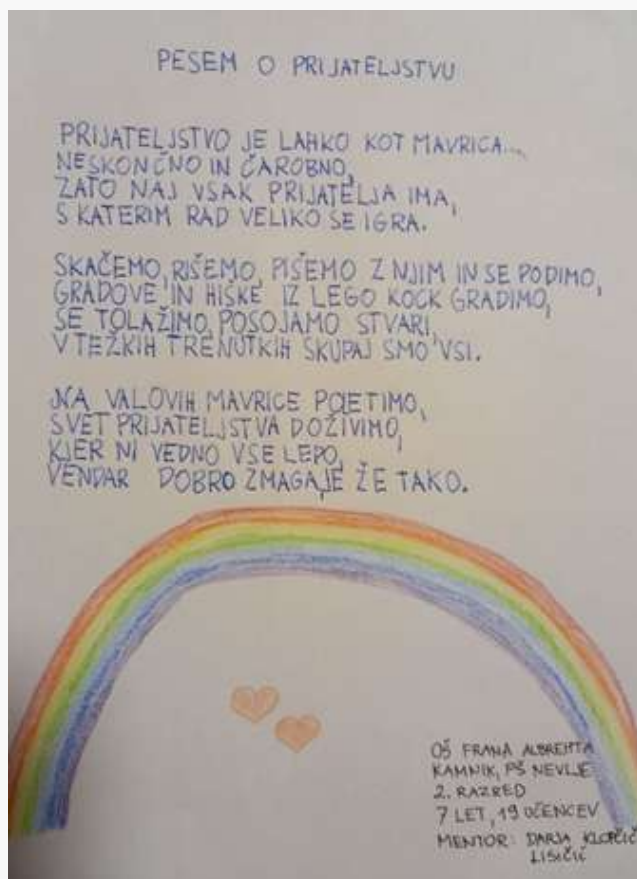 PESEM O PRIJATELJSTVU
PRIJATELJSTVO JE LAHKO KOT MAVRICA...
NESKONČNO IN ČAROBNO,
ZATO NAJ VSAK PRIJATELJA IMA,
S KATERIM RAD VELIKO SE IGRA.
SKAČEMO, RIŠEMO, PIŠEMO Z NJIM IN SE PODIMO,
GRADOVE IN HIŠKE IZ LEGO KOCK GRADIMO,
SE TOLAŽIMO, POSOJAMO STVARI,
V TEŽKIH TRENUTKIH SKUPAJ SMO VSI.
NA VALOVIH MAVRICE POLETIMO,
SVET PRIJATELJSTVA DOŽIVIMO,
KJER NI VEDNO VSE LEPO,
VENDAR DOBRO ZMAGAJE ŽE TAKO.
OŠ FRANA ALBREHTA
KAMNIK, PŠ NEVLJE
2. RAZRED
7 LET, 19 UČENCEV
MENTOR: DARJA KLOPČIČ
LISIČIĆ